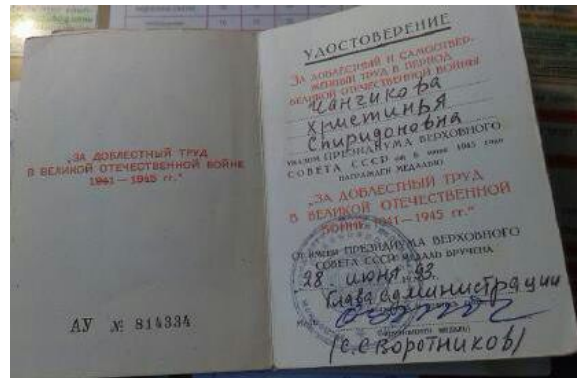 „ЗА ДОБЛЕСТНЫЙ ТРУД
В ВЕЛИКОЙ ОТЕЧЕСТВЕННОЙ ВОЙНЕ
1941—1945 гг."
АУ № 814334
УДОСТОВЕРЕНИЕ
ЗА ДОБЛЕСТНЫЙ И САМООТВЕР-
ЖЕННЫЙ ТРУД В ПЕРИОД
ВЕЛИКОЙ ОТЕЧЕСТВЕННОЙ ВОЙНЫ
Чанчикова
Христинья
Спиридоновна
указом ПРЕЗИДИУМА ВЕРХОВНОГО
СОВЕТА СССР от 6 июня 1945 года
НАГРАЖДЕН МЕДАЛЬЮ
„ЗА ДОБЛЕСТНЫЙ ТРУД
В ВЕЛИКОЙ ОТЕЧЕСТВЕННОЙ
ВОЙНЕ 1941—1945 гг."
От имени ПРЕЗИДИУМА ВЕРХОВНОГО
СОВЕТА СССР МЕДАЛЬ ВРУЧЕНА
28 июня 93
Глава администрации
(С.С Воротников)